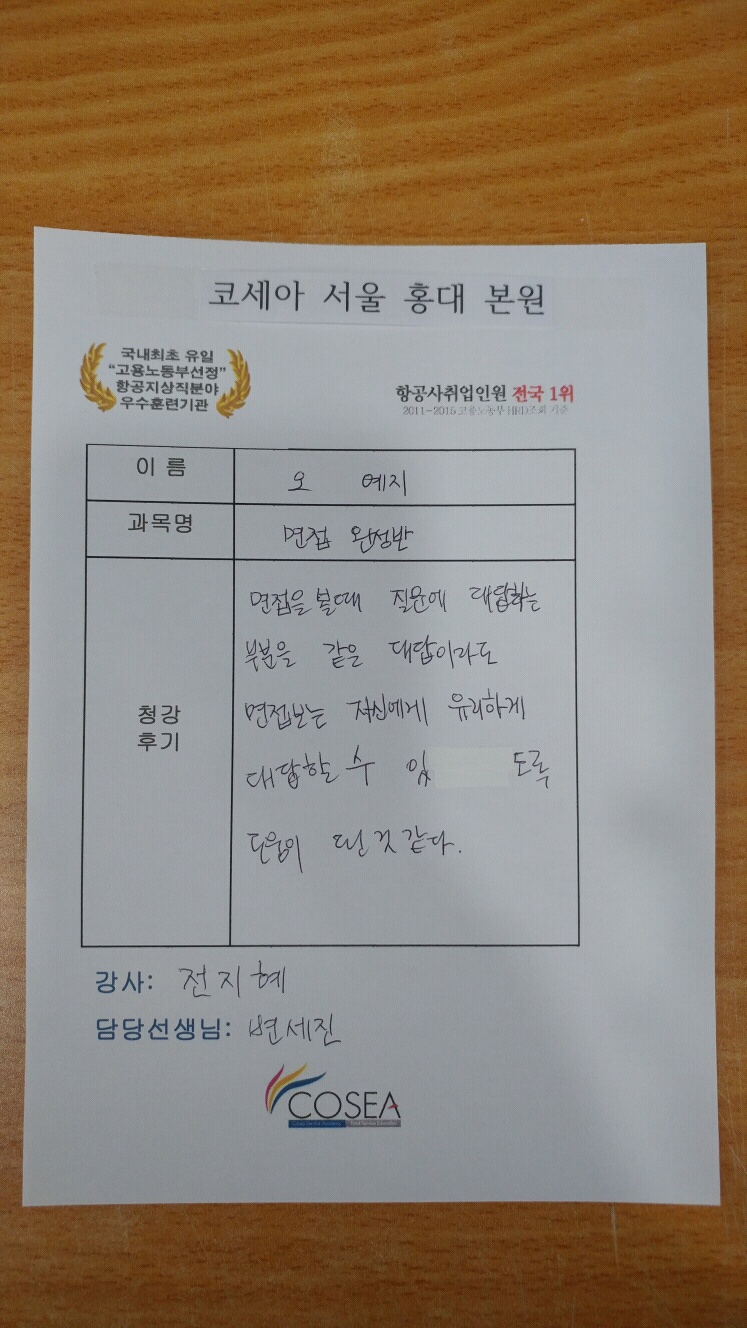 코세아 서울 홍대 본원
국내최초 유일
“고용노동부선정”
항공지상직분야
우수훈련기관
항공사취업인원 전국 1위
2011-2015 고용노동부 HRD조회 기준
이 름
오 예지
과목명
면접 완성반
청강
후기
면접을 볼때 질문에 대답하는
부분을 같은 대답이라도
면접보는 자신에게 유리하게
대답할 수 있 도록
도움이 된것 같다.
강사: 전지혜
담당선생님: 변세진
COSEA